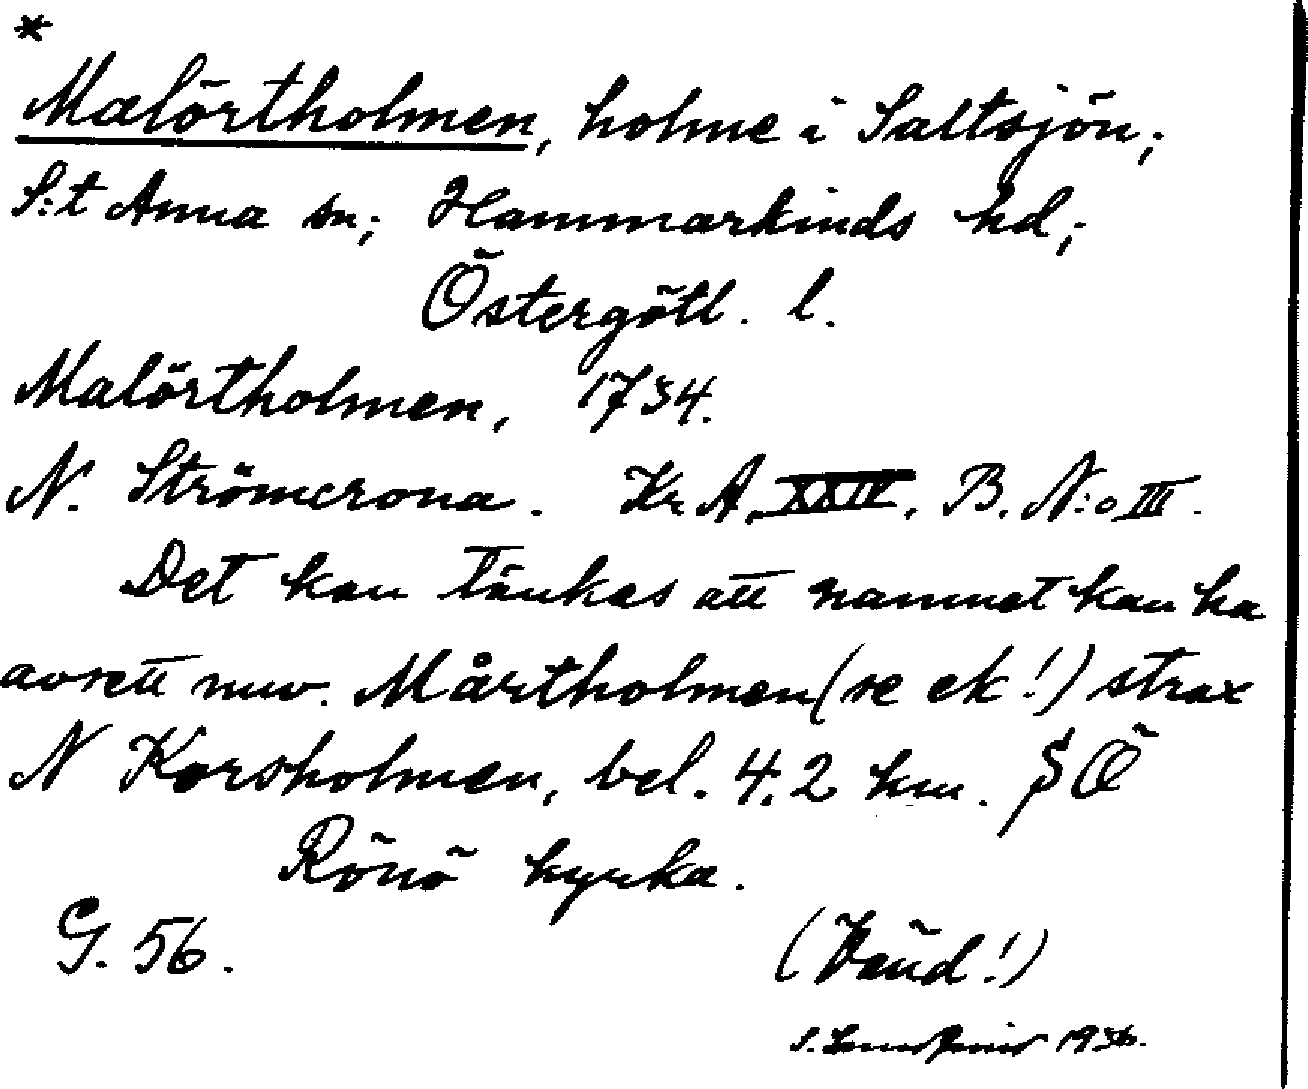 *
Malörtholmen, holme i Saltsjön;
S:t Anna sn; Hammarkinds hd;
Östergötl. l.
Malörtholmen, 1734.
N. Strömcrona. Kr. A. XXIV. B. N:o III.
Det kan tänkas att namnet kan ha
avsett nuv. Mårtholmen (se ek!) strax
N Korsholmen, bel. 4,2 km. SÖ
Rönö kyrka.
G. 56.
(Vänd!)
1936.